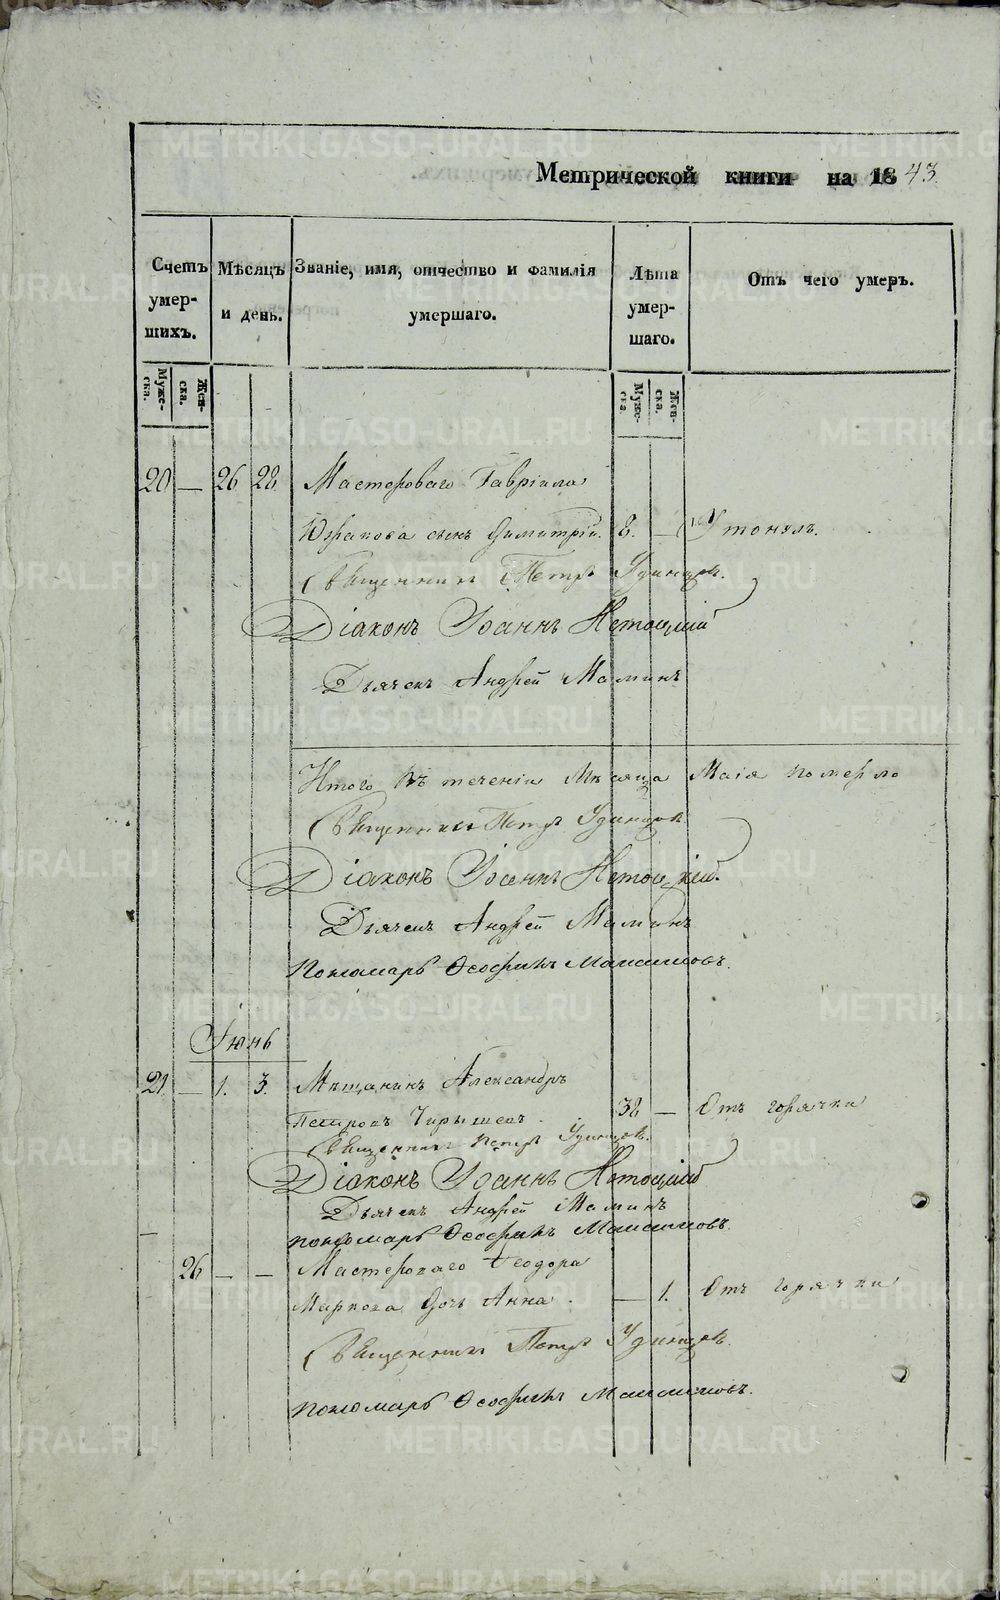 Метрической книги на 1843
Счетъ умер-шихъ.
Мѣсяцъ и день.
Званіе, имя, отчество и фамилія умершаго.
Лѣта умер-шаго.
Отъ чего умеръ.
Муже-ска.
Жен-ска.
Муже-ска
Жен-ска.
20 — 26 28 Мастероваго Гавріила
сынъ Димитрій. 8. — Утонулъ.
Священникъ Петръ Удинцовъ.
Діаконъ Іоаннъ
Дьячекъ Андрей Маминъ
Итого въ теченіи Мѣсяца Маія померло
Священникъ Петръ Удинцовъ
Діаконъ Іоаннъ
Дьячекъ Андрей Маминъ
Пономарь Ѳеофинъ Максимовъ.
Іюнь
21 — 1. 3. Мѣщанинъ Александръ
Петровъ 38 — Отъ горячки
Священникъ Петръ Удинцовъ.
Діаконъ Іоаннъ
Дьячекъ Андрей Маминъ
Пономарь Ѳеофинъ Максимовъ.
26 — — Мастероваго Ѳеодора
Маркова дочь Анна. — 1. Отъ горячки
Священникъ Петръ Удинцовъ.
Пономарь Ѳеофинъ Максимовъ.
METRIKI.GASO-URAL.RU